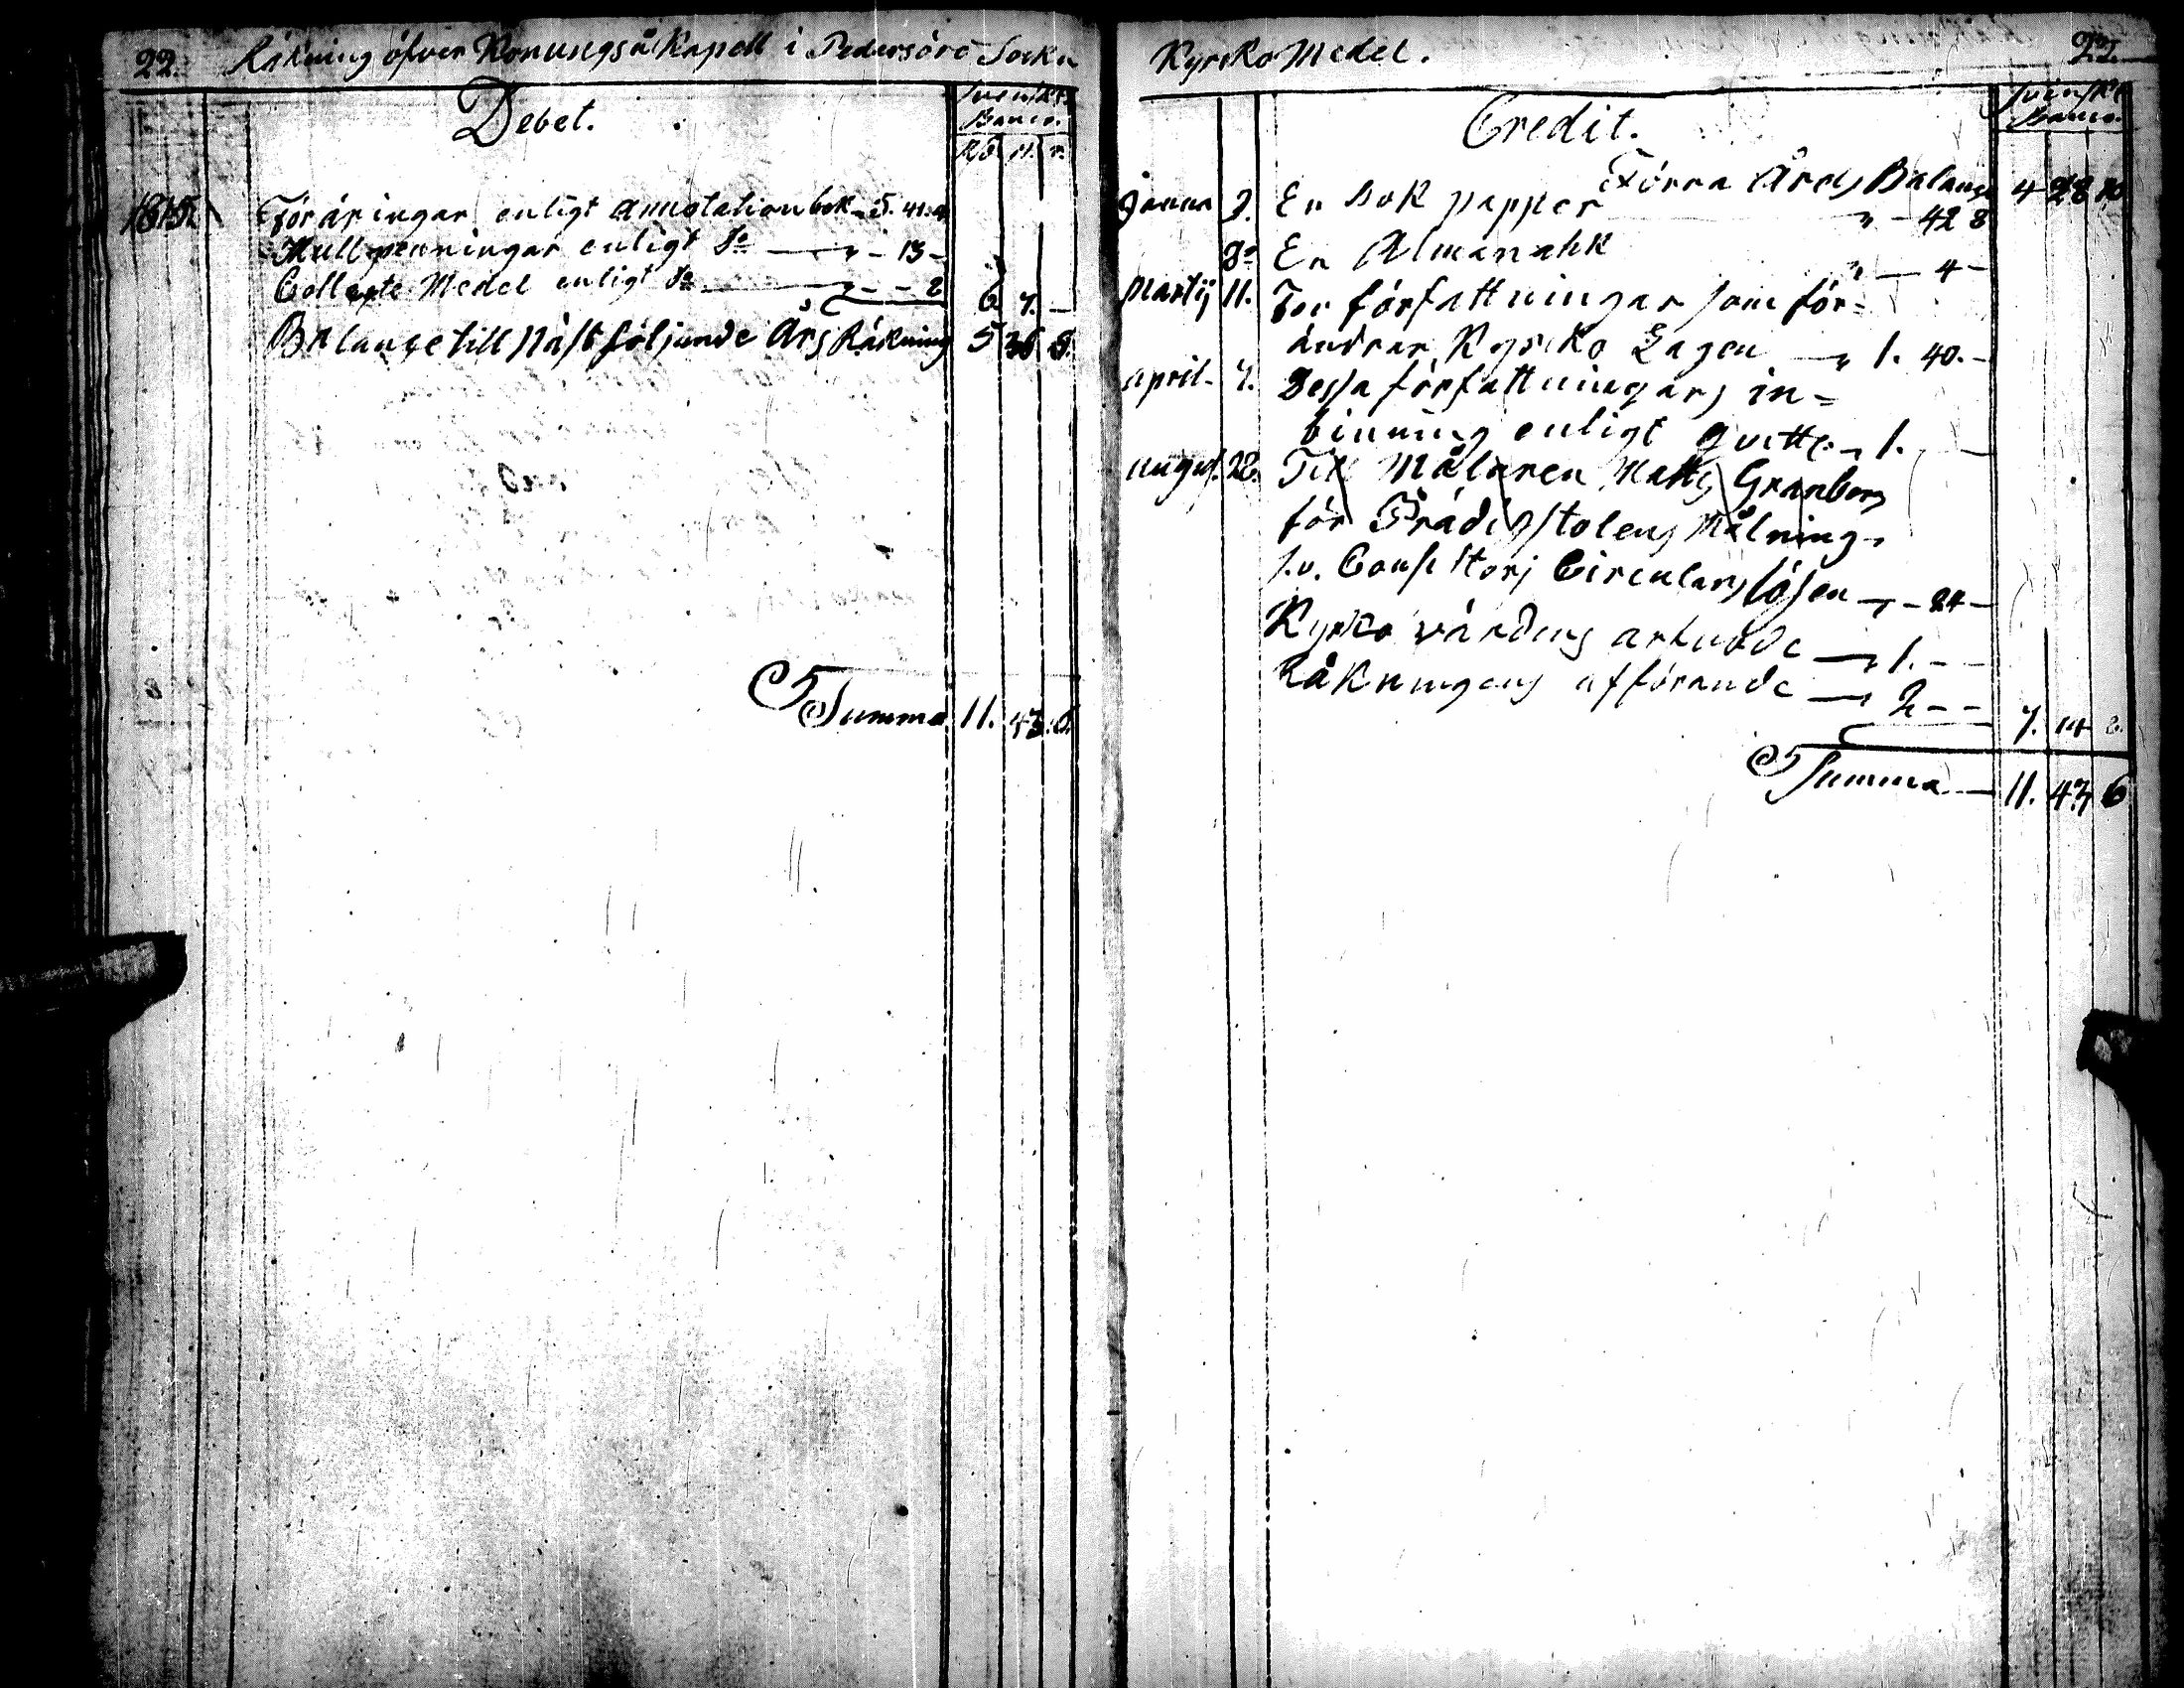 22. Räkning öfver Konungså Kapell i Pedersöre Sockn
Debet.
Svenskt
Banco.
Rd s. r.
1815. Föräringar enligt annotation bok - 5. 41. 4
Mullpenningar enligt do - 13 -
Collecte Medel enligt do - - 2 6. 7. -
Balance till näst följande Års Räkning 5 36 8.
Summa 11. 43. 6.
Kyrcko Medel. 22.
Credit.
Svenskt
Banco.
Förra Årets Balance 4 28 10
Janua 7. En Bok papper " - 42 8
do En Almanahk " - 4 -
Martij 11. For författningar som för=
ändrar Kyrcko Lagen " 1. 40. -
april 7. Dessa författningars in=
binning enligt qvitte. " 1. -
august. 28. Till Målaren Matts Granberg
för Prädikstolens Målning.
s.v. Consistorj Circulars lösen " - 24 -
Kyrko värdens arbude " 1. - -
Räkningens afförande " 2 - - 7. 14 8.
Summa 11. 43 6